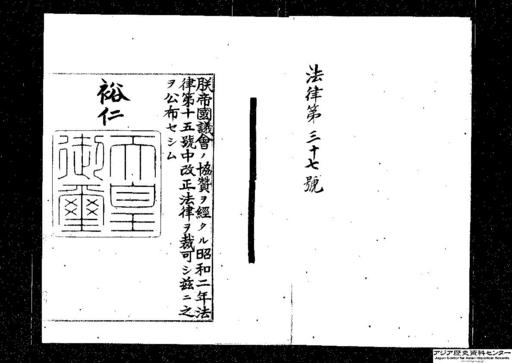 法律第三十七號
朕帝國議會ノ協贊ヲ經タル昭和二年法
律第十五號中改正法律ヲ裁可シ茲ニ之
ヲ公布セシム
裕仁
天皇
御璽
アジア歴史資料センター
Japan Center for Asian Historical Records